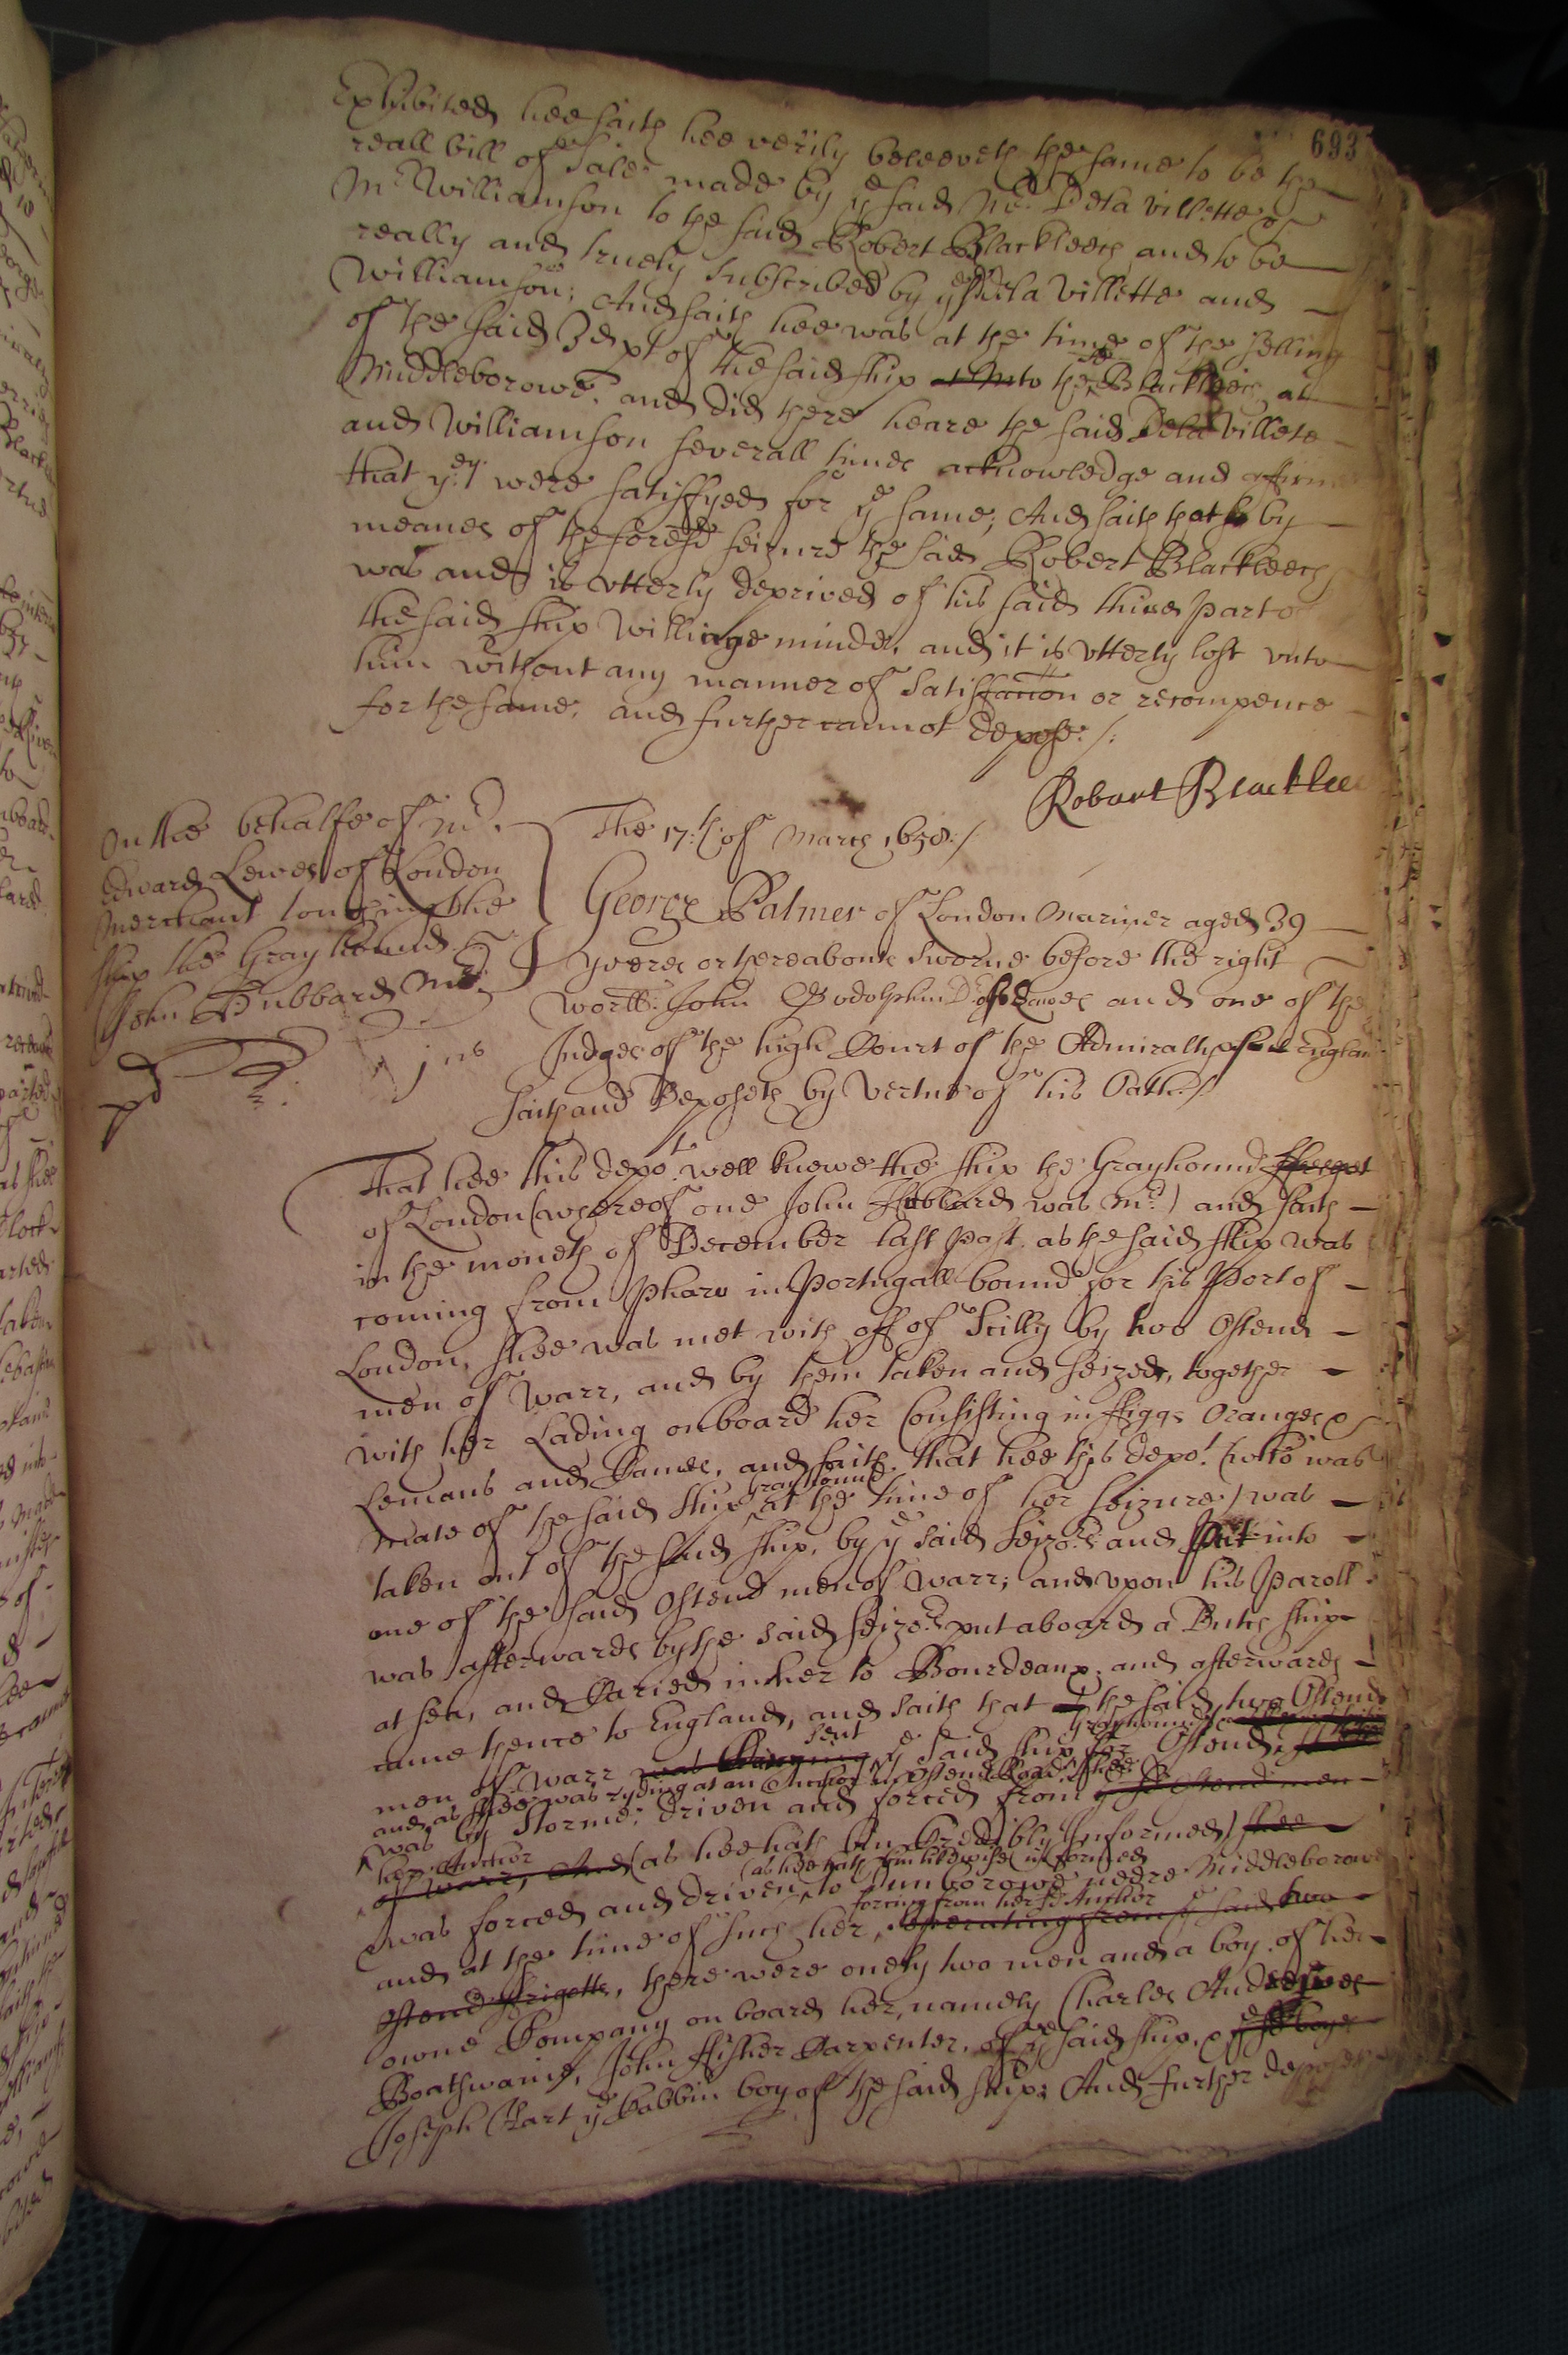 693
Exhibited hee saith hee verily beleeveth the same to be the
reall bill of Sale made by ye said Mr. Dela Villette &
Mr. Williamson to the said Robert Blackleech and to be
really and truely subscribed by ye sd Dela Villette and
Williamson; And saith hee was at the time of the selling
of the said 3d pt of the said ship to the sd Blackleech at
Middleborowe, and did there heare the said Dela Villete
and Williamson severall times acknowledge and affirme
that yey were satisfyed for ye same; And saith that by
meanes of the foresd seizure the said Robert Blackleech
was and is utterly deprived of his said third part of
the said ship Willinge minde, and it is utterly lost unto
him without any manner of satisfaction or recompence
for the same, and further cannot depose./:
Robart Blacklee
On the behalfe of Mr.
Edward Lewes of London
Merchant touching the
ship the Grayhound
John Hubbard Mr.
The 17:th of March 1658:/
George Palmer of London Mariner aged 39
yeeres or thereabouts sworne before the right
worll: John Godolphin Dr. of Lawes and one of the
Judges of the high Court of the Admiralty of England
saith and Deposeth by vertue of his Oath./
j ns
That hee this depot. well knowe the ship the Grayhound ffrigot
of London (whereof one John Hubbard was Mr.) and saith
in the moneth of December last past as the said ship was
coming from Pharo in Portugall bound for this Port of
London, shee was met with off of Scilly by two Ostend
men of warr, and by them taken and seized, together
with her Lading on board her Consisting in ffiggs Oranges &
Lemans and Canes, and saith that hee this depot. (who was
Grayhound
Mate of the said ship at the time of her seizure) was
taken out of the said ship, by ye said seizors and put into
one of the said Ostend men of warr; and upon his Paroll
was afterwards by the said seizors put aboard a Dutch ship
at sea, and Caried in her to Bourdeaux, and afterwards
came thence to England, and saith that the said two Ostend
sent Grayhound
men of warr was Carrying ye said ship for Ostend,
and as shee was ryding at an Anchor in Ostend Road, shee
was by storme driven and forced from ye sd Ostend men
her Anchor
of warr, And (as hee hath bin Credibly Informed) shee
(as hee hath bin likewise informed
was forced and driven to Dunborowe neere Middleborowe
forcing from her sd Anchor
and at the time of such her, separating from ye said two
Ostend ffrigotts, there were onely two men and a boy of her
owne Company on board her, namely Charles Andrewes
Boatswaine, John ffisher Carpenter, of ye said ship, & ye sd boye
Joseph Hart ye Cabbin boy of the said ship; And further deposeth